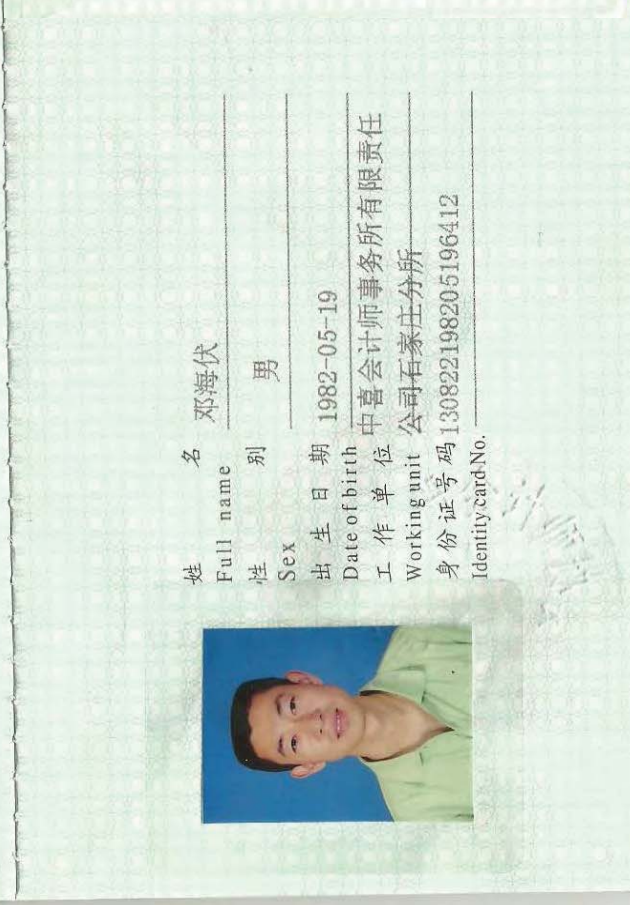 姓 名 邓海伏
Full name
性 别 男
Sex
出 生 日 期 1982-05-19
Date of birth
工 作 单 位 中喜会计师事务所有限责任
Working unit 公司石家庄分所
身 份 证 号 码 130822198205196412
Identity card No.